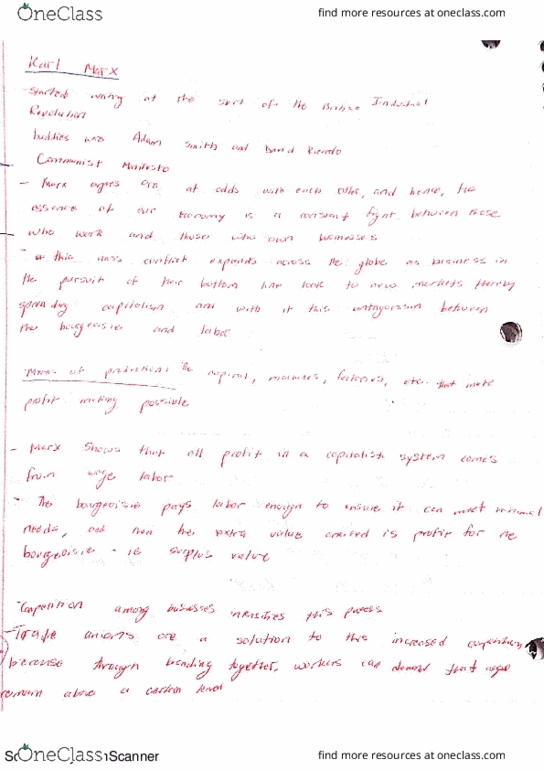 OneClass find more resources at oneclass.com
Karl Marx
- Started writing at the start of the Industrial
Revolution
buddies was Adam Smith and David Ricardo
Communist Manifesto
- Marx at odds with each other, and hence, the
essence of our economy is a constant fight between those
who work and those who own businesses
- this conflict expands across the globe as business in
the pursuit of their bottom line look to new markets thereby
spreading capitalism and with it this antagonism between
the bourgeoisie and labor
Means of production: capital, machines, factories, etc. that make
profit making possible
- Marx shows that all profit in a capitalist system comes
from wage labor
- The bourgeoisie pays labor enough to ensure it can meet minimal
needs, and then the extra value created is profit for the
bourgeoisie - is surplus value
- Competition among businesses intensifies this process
- Trade unions are a solution to this increased
because through banding together, workers can demand that wages
remain above a certain level
OneClass Scanner find more resources at oneclass.com